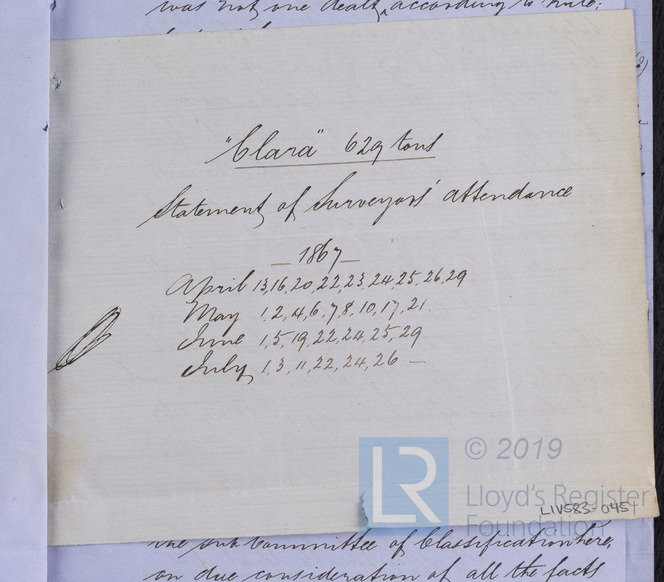 was not one death, according to rule;
"Clara" 629 tons
Statement of Surveyors' attendance
— 1867 —
April 13,16,20,22,23,24,25,26,29
May 1,2,4,6,7,8,10,17,21
June 1,5,19,22,24,25,29
July 1,3,11,22,24,26 —
LR
© 2019
Lloyd's Register
Foundation
LIV583-0451
the sub Committee of Classification here,
on due consideration of all the facts